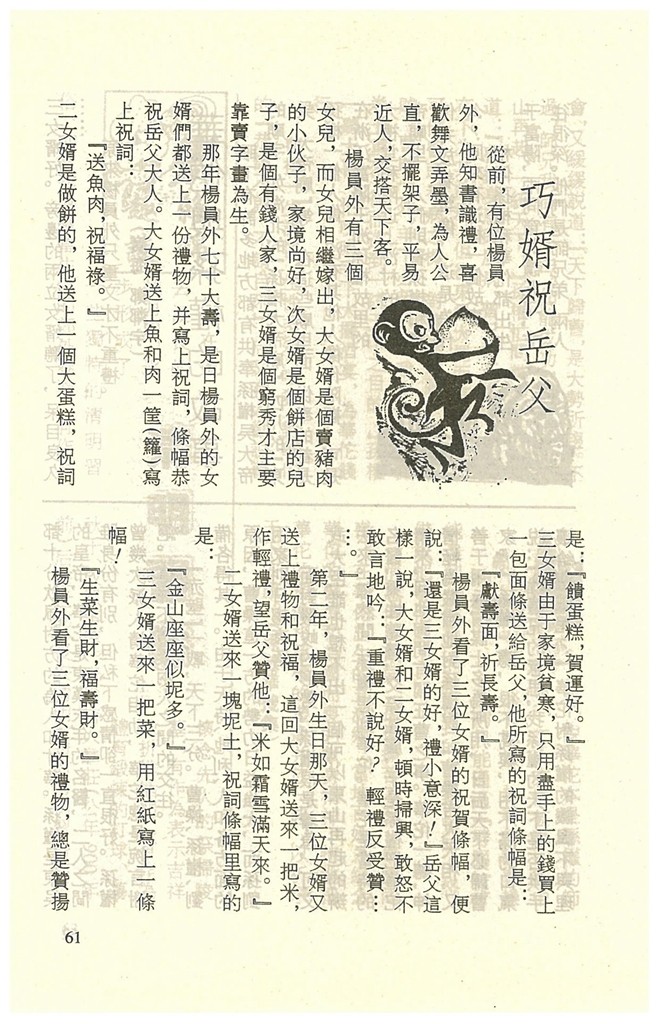 巧婿祝岳父
從前，有位楊員
外，他知書識禮，喜
歡舞文弄墨，為人公
直，不擺架子，平易
近人，交搭天下客。
楊員外有三個
女兒，而女兒相繼嫁出，大女婿是個賣豬肉
的小伙子，家境尚好，次女婿是個餅店的兒
子，是個有錢人家，三女婿是個窮秀才主要
靠賣字畫為生。
那年楊員外七十大壽，是日楊員外的女
婿們都送上一份禮物，并寫上祝詞，條幅恭
祝岳父大人。大女婿送上魚和肉一筐(籮)寫
上祝詞：
『送魚肉，祝福祿。』
二女婿是做餅的，他送上一個大蛋糕，祝詞
是：『饋蛋糕，賀運好。』
三女婿由于家境貧寒，只用盡手上的錢買上
一包面條送給岳父，他所寫的祝詞條幅是：
『獻壽面，祈長壽。』
楊員外看了三位女婿的祝賀條幅，便
說：『還是三女婿的好，禮小意深！』岳父這
樣一說，大女婿和二女婿，頓時掃興，敢怒不
敢言地吟：『重禮不說好？輕禮反受贊…
…。』
第二年，楊員外生日那天，三位女婿又
送上禮物和祝福，這回大女婿送來一把米，
作輕禮，望岳父贊他：『米如霜雪滿天來。』
二女婿送來一塊坭土，祝詞條幅里寫的
是：
『金山座座似坭多。』
三女婿送來一把菜，用紅紙寫上一條
幅！
『生菜生財，福壽財。』
楊員外看了三位女婿的禮物，總是贊揚
61